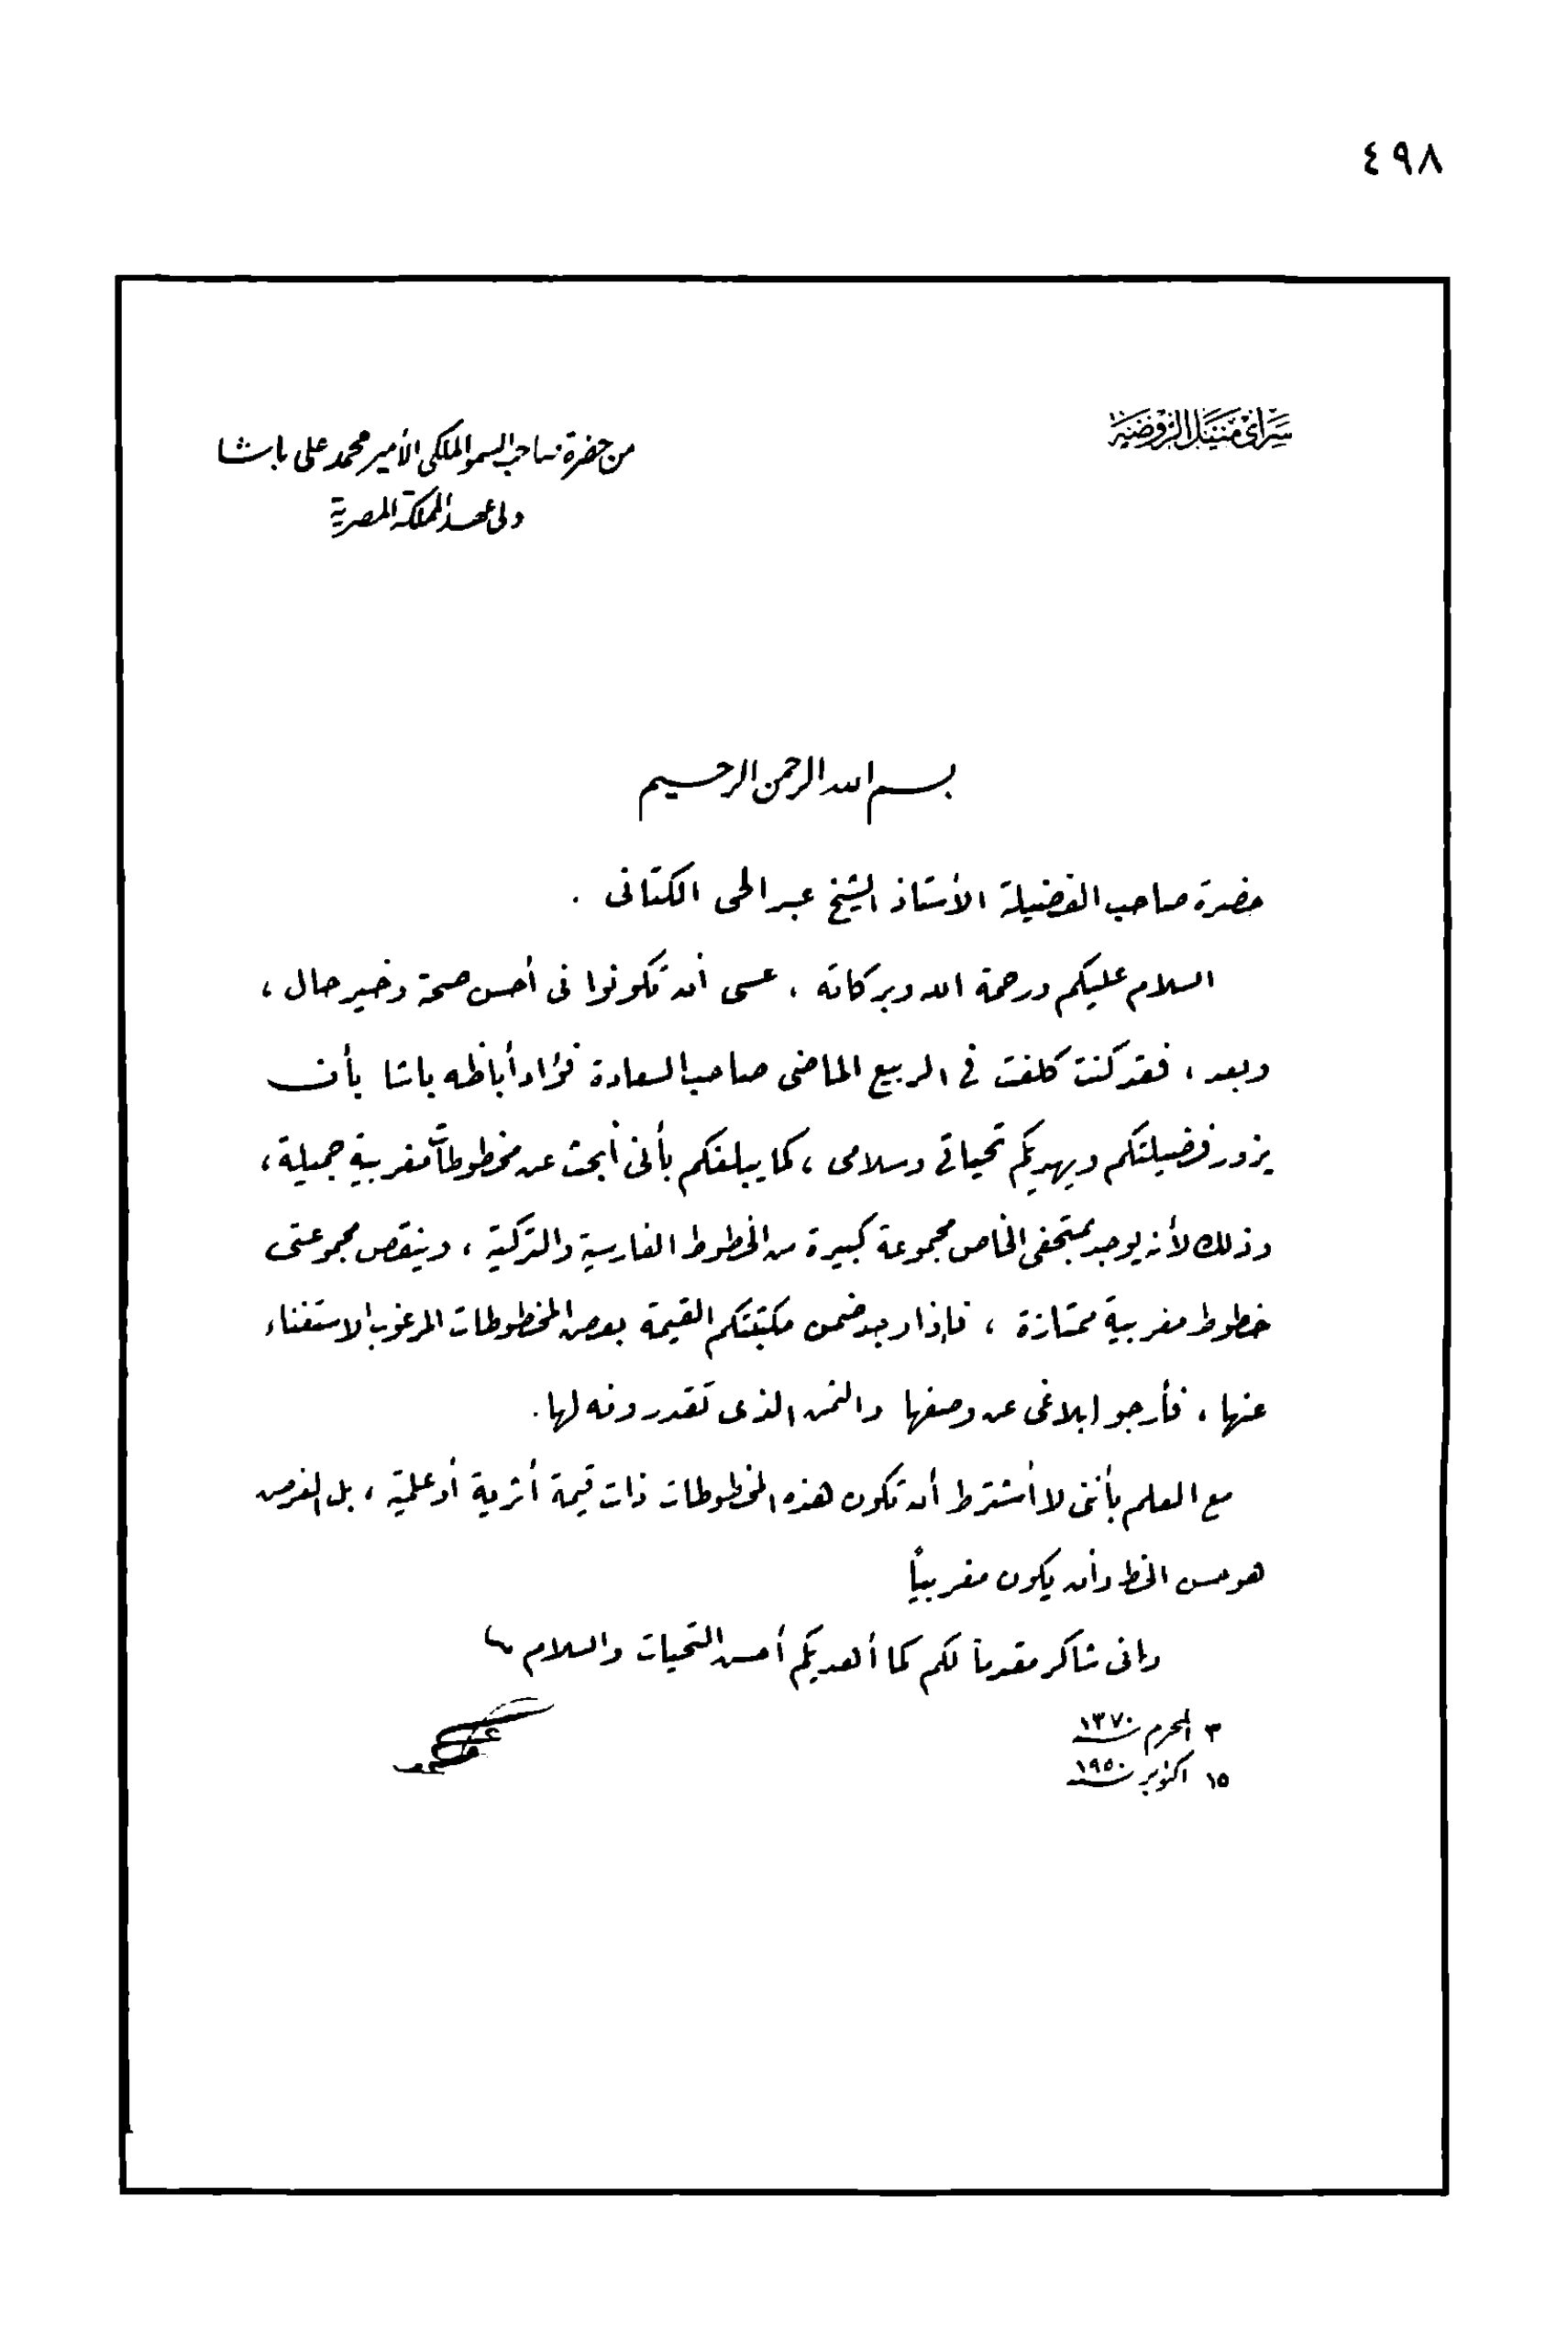 ٤٩٨
سراي منيل الروضة
من حضرة صاحب السمو الملكى الأمير محمد على باشا
ولى عهد المملكة المصرية
بسم الله الرحمن الرحيم
حضرة صاحب الفضيلة الأستاذ الشيخ عبد الحى الكتانى .
السلام عليكم ورحمة الله وبركاته ، عسى أن تكونوا فى أحسن صحة وخير حال ،
وبعد ، فقد كنت كلفت فى الربيع الماضى صاحب السعادة فؤاد أباظه باشا بأن
يزور فضيلتكم ويهديكم تحياتى وسلامى ، كما يبلغكم بأنى أبحث عن مخطوطات مغربية جميلة ،
وذلك لأنه يوجد بمتحفى الخاص مجموعة كبيرة من الخطوط الفارسية والتركية ، وينقص مجموعتى
خطوط مغربية ممتازة ، فإذا وجد ضمن مكتبتكم القيمة بعض المخطوطات المرغوب الاستغناء
عنها ، فأرجو إبلاغى عن وصفها والثمن الذى تقدرونه لها .
مع العلم بأننى لا أشترط أن تكون هذه المخطوطات ذات قيمة أثرية أو علمية ، بل الغرض
هو حسن الخط وأن يكون مغربياً
وانى شاكر مقدماً لكم كما أهديكم أحسن التحيات والسلام
٣ المحرم سنة ١٣٧٠
١٥ اكتوبر سنة ١٩٥٠